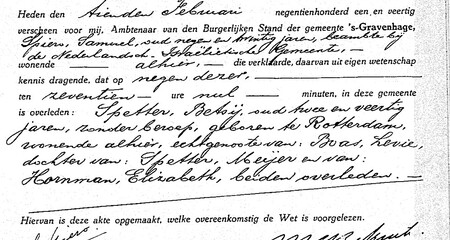 Heden den tienden Februari negentienhonderd een en veertig
verscheen voor mij, Ambtenaar van den Burgerlijken Stand der gemeente 's-Gravenhage,
Spier, Samuel, oud negen en twintig jaren, beambte bij
de Nederlandsch-Israëlietische Gemeente,
wonende alhier, die verklaarde, daarvan uit eigen wetenschap
kennis dragende, dat op negen dezer,
ten zeventien ure nul minuten, in deze gemeente
is overleden: Spetter, Betsij, oud twee en veertig
jaren, zonder beroep, geboren te Rotterdam,
wonende alhier, echtgenoote van: Bas, Levie,
dochter van: Spetter, Meijer en van:
Hornman, Elizabeth, beiden overleden.
Hiervan is deze akte opgemaakt, welke overeenkomstig de Wet is voorgelezen.